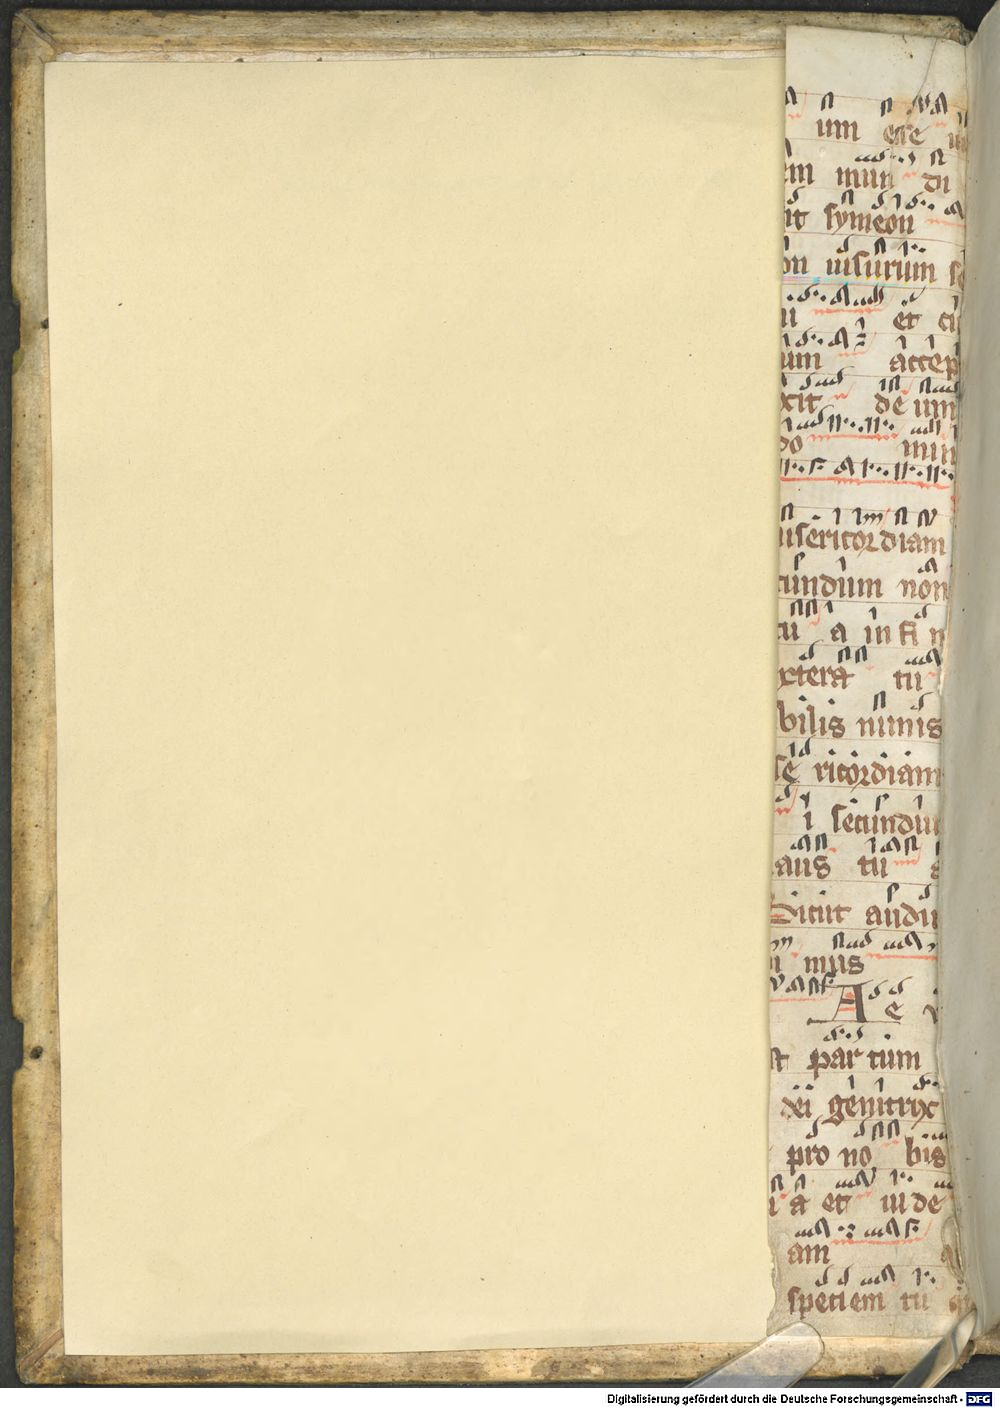 um esse
em mun di
it symeon
on uisurum se
ui et cu
um accep
xit de um
do min
misericordiam
cundum non
tu a in fi n
xtera tu
bilis nimis
se ricordiam
i secundu
aus tu
Dicit audiu
i mus
A e
st par tum
dei genitrix
pro no bis
i a et ui de
am
speciem tu
Digitalisierung gefördert durch die Deutsche Forschungsgemeinschaft - DFG